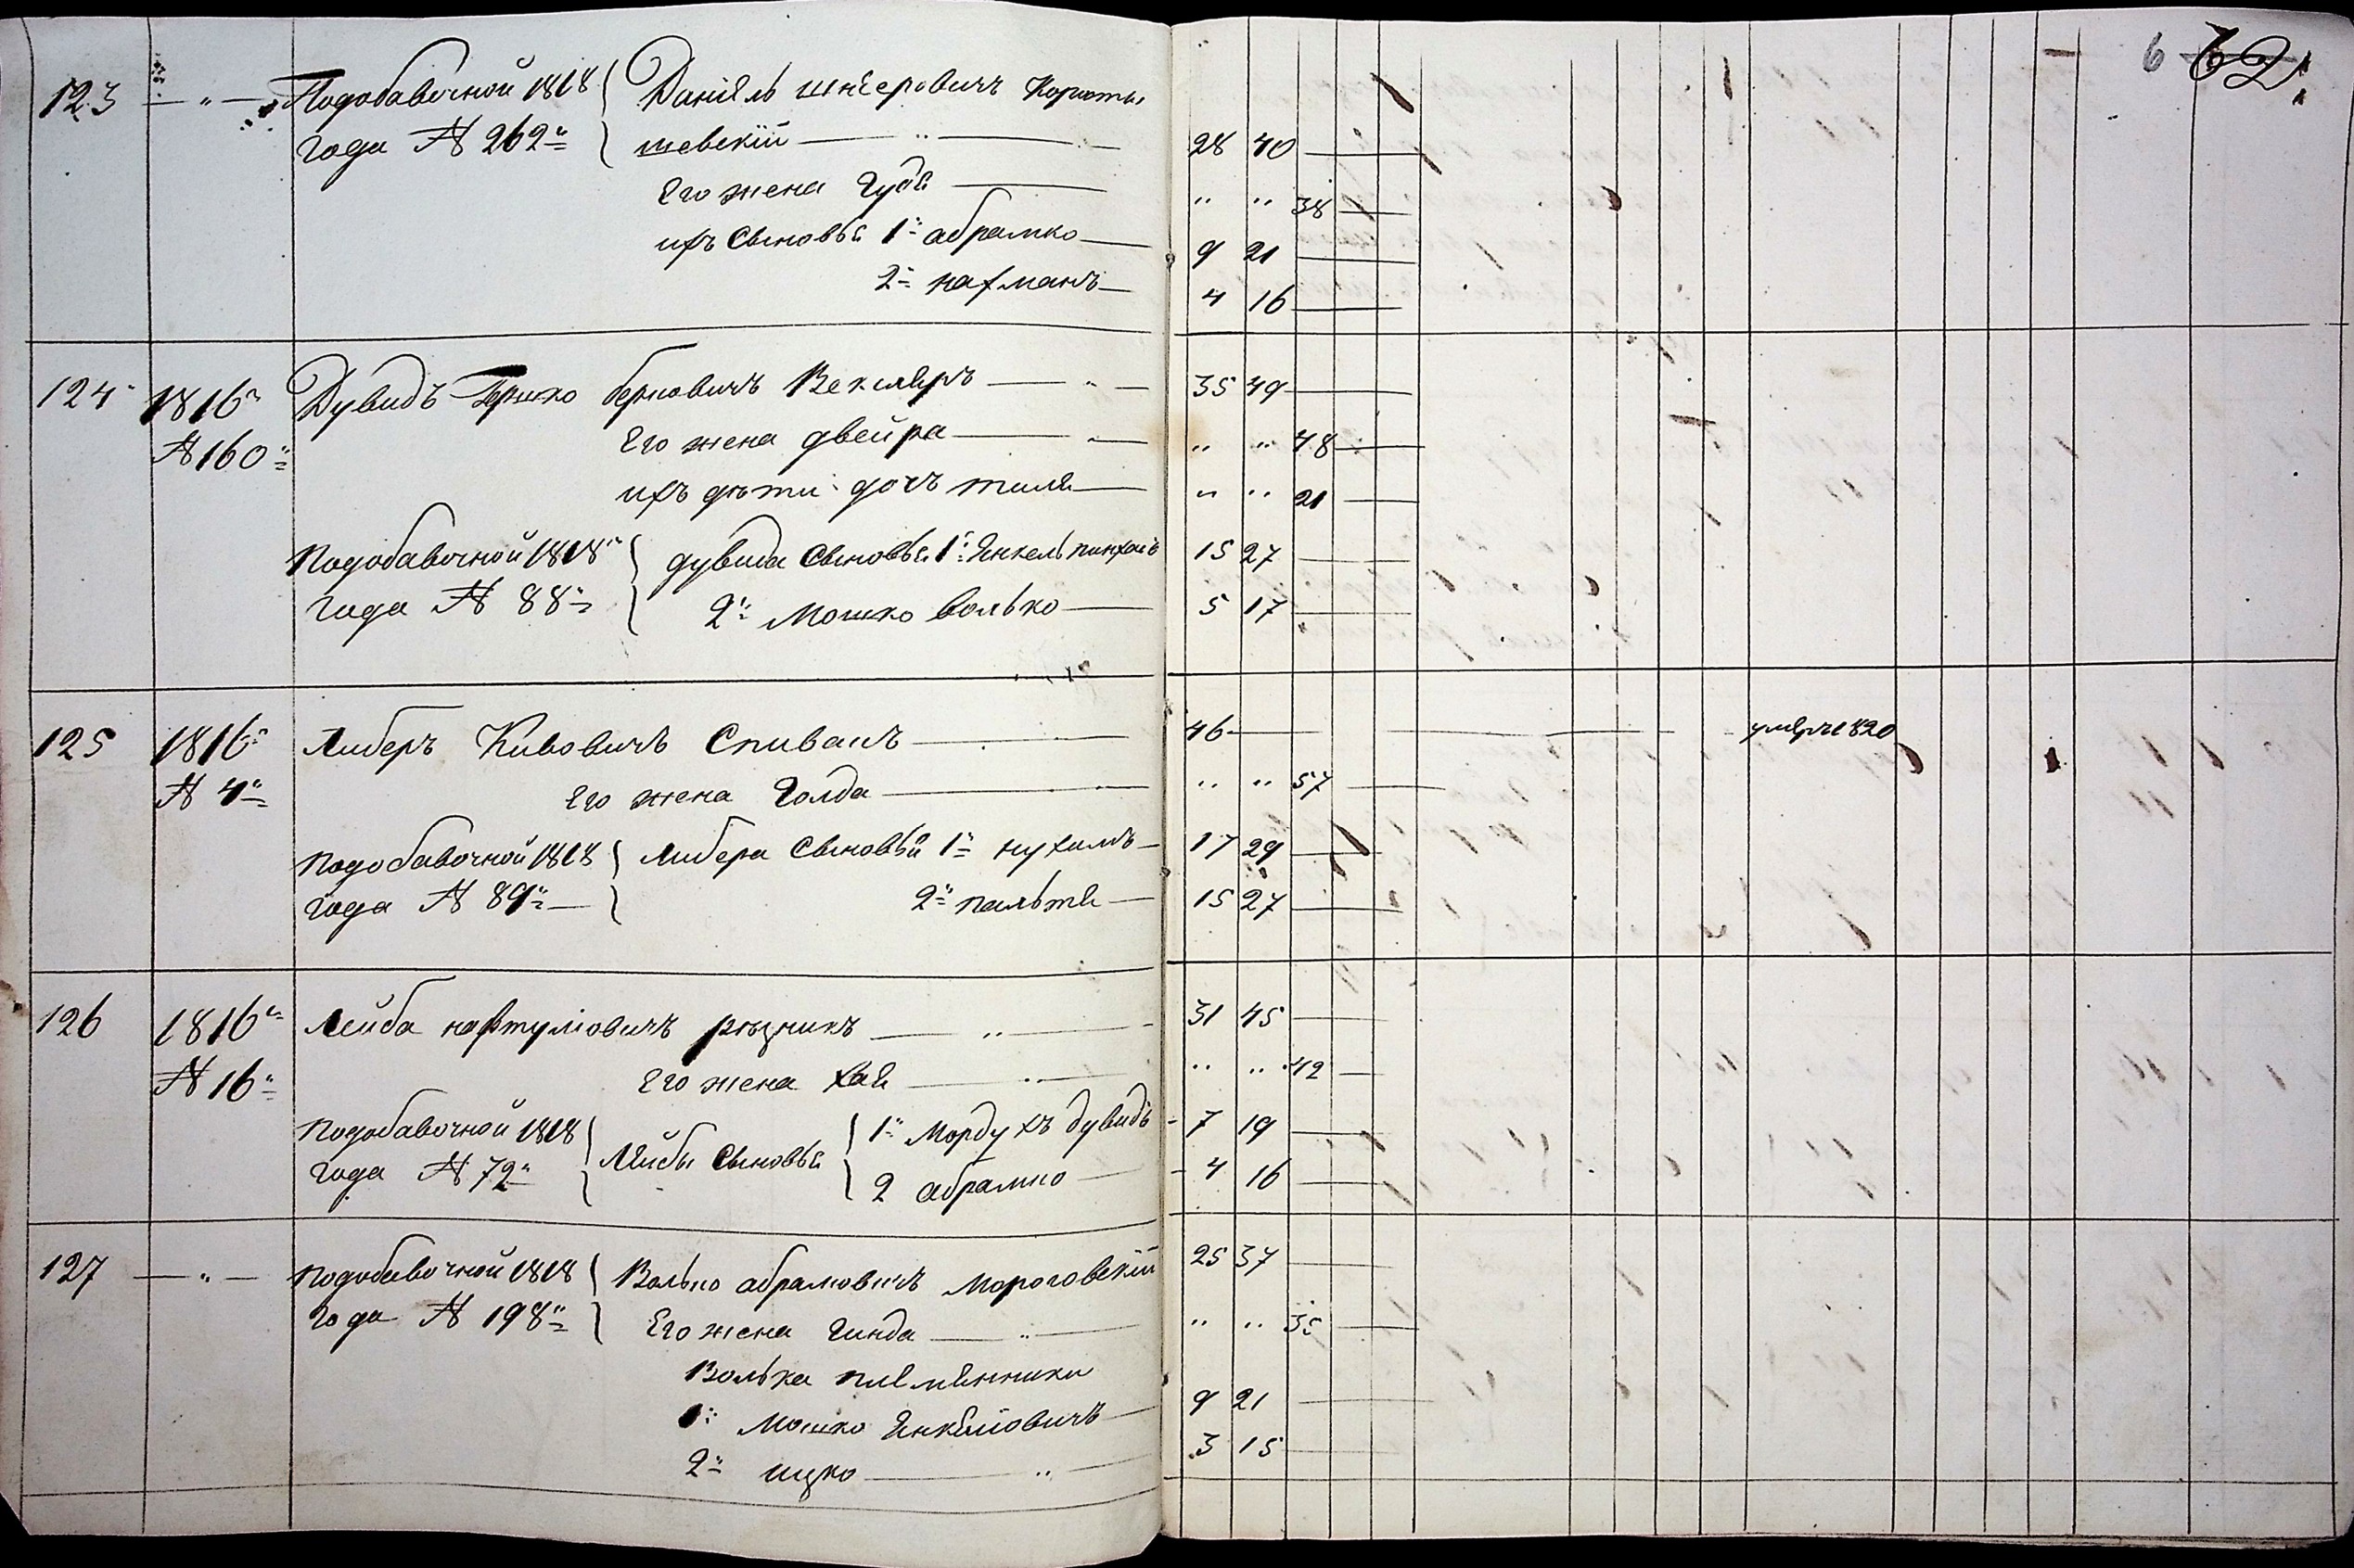 62
6
123 — " — Подобавочной 1818 Даніель шнеeровичъ Корсты
года № 262 шевскій — 28 40
Его жена Гудя — " " 38
ихъ Сыновья 1 абрамко — 9 21
2 нахманъ — 4 16
124 1816 Дувидъ Гершко берковичъ Векслеръ — 35 49
№ 160 Его жена двейра — " " 48
ихъ дѣти дочь тиля — " " 21
Подобавочной 1818 дувида Сыновья 1 Янкель пинхасъ 15 27
года № 88 2 Мошко волько — 5 17
125 1816 Либеръ Кивовичъ Спивакъ — 46 — умеръ 1820
№ 4 Его жена Голда — " " 57
Подобавочной 1818 либера Сыновья 1 нухимъ — 17 29
года № 89 2 пальтя — 15 27
126 1816 Лейба нафтуліовичъ рѣзникъ — 31 45
№ 16 Его жена хая — " " 42
Подобавочной 1818 Лейбы Сыновья 1 Мордухъ дувидъ - 7 19
года № 72 2 абрамко - 4 16
127 — " — подобавочной 1818 Волько абрамовичъ Мороговскій 25 37
года № 198 Его жена Гинда — " " 35
Волька племянники
1 Мошко Янкеліовичъ — 9 21
2 ицко — " 3 15